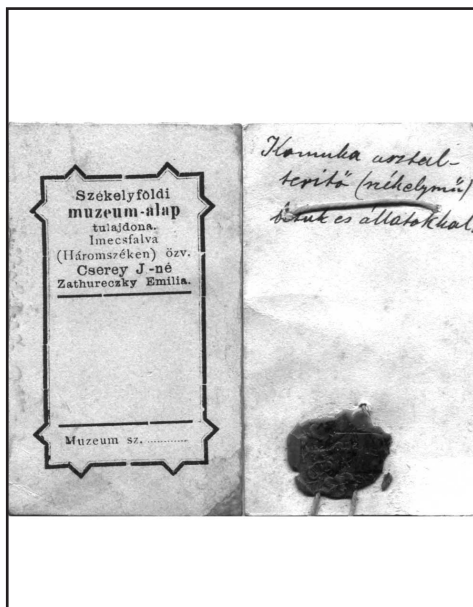 Székelyföldi
muzeum-alap
tulajdona.
Imecsfalva
(Háromszéken) özv.
Cserey J.-né
Zathureczky Emilia.
Muzeum sz. ............
Komuka asztal-
terítő
és állatokkal.